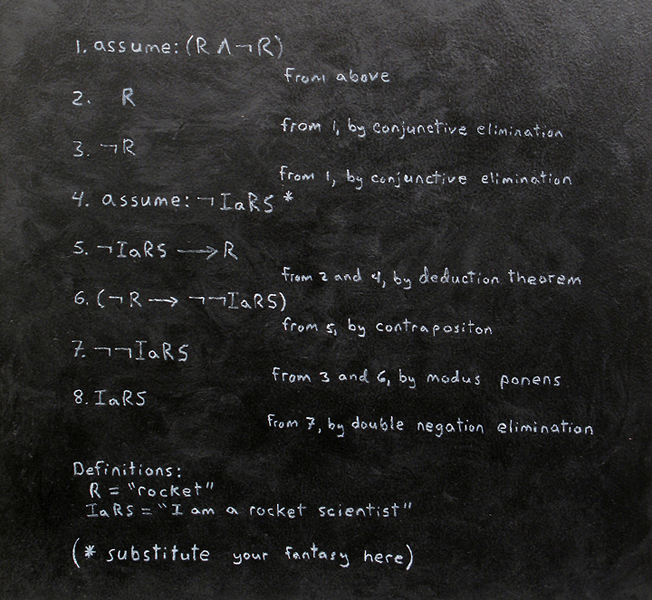 1. assume: (R ∧ ¬R)
from above
2. R
from 1, by conjunctive elimination
3. ¬R
from 1, by conjunctive elimination
4. assume: ¬IaRS *
5. ¬IaRS → R
from 2 and 4, by deduction theorem
6. (¬R → ¬¬IaRS)
from 5, by contrapositon
7. ¬¬IaRS
from 3 and 6, by modus ponens
8. IaRS
from 7, by double negation elimination
Definitions:
R = "rocket"
IaRS = "I am a rocket scientist"
(* substitute your fantasy here)